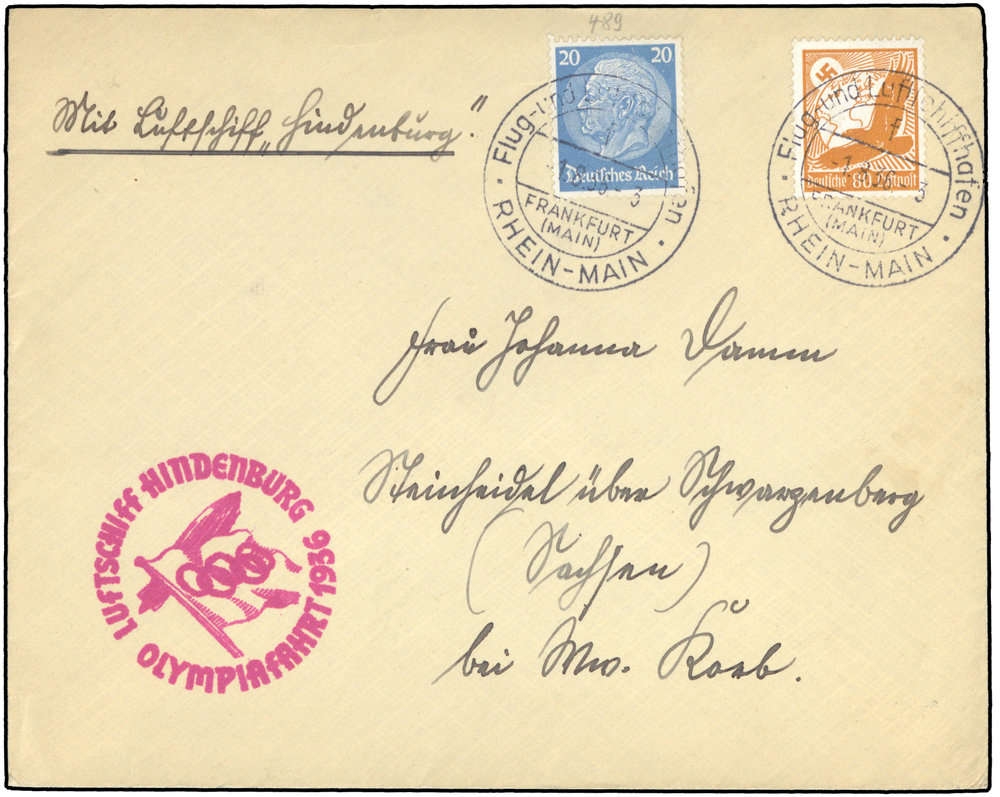 489
Mit Luftschiff „Hindenburg."
20 20
Deutsches Reich
Flug-und
RHEIN-MAIN
FRANKFURT
(MAIN)
Deutsche 80 Luftpost
Flug-und Luftschiffhafen
RHEIN-MAIN
FRANKFURT
(MAIN)
Frau Johanna Damm
Steinheidel über Schwarzenberg
(Sachsen)
bei Ww. Korb.
LUFTSCHIFF HINDENBURG
OLYMPIAFAHRT 1936